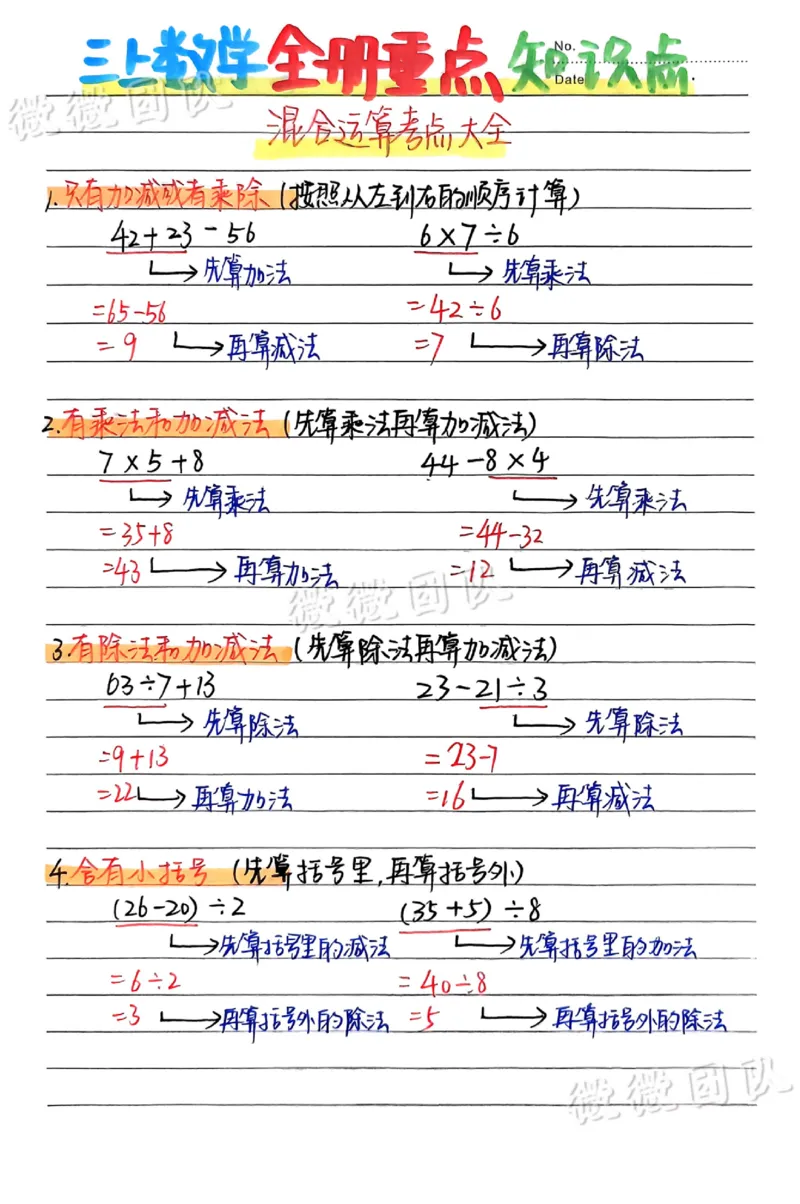 三上数学全册重点知识点
No.
Date
微微团队
混合运算考点大全
1.只有加减或者乘除(按照从左到右的顺序计算)
42+23-56 6×7÷6
先算加法 先算乘法
=65-56 =42÷6
=9 再算减法 =7 再算除法
2.有乘法和加减法(先算乘法再算加减法)
7×5+8 44-8×4
先算乘法 先算乘法
=35+8 =44-32
=43 再算加法 =12 再算减法
微微团队
3.有除法和加减法(先算除法再算加减法)
63÷7+13 23-21÷3
先算除法 先算除法
=9+13 =23-7
=22 再算加法 =16 再算减法
4.含有小括号(先算括号里,再算括号外)
(26-20)÷2 (35+5)÷8
先算括号里的减法 先算括号里的加法
=6÷2 =40÷8
=3 再算括号外的除法 =5 再算括号外的除法
微微团队